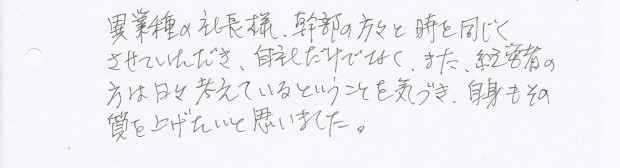 異業種の社長様、幹部の方々と時を同じく
させていただき、自社だけでなく、また、経営者の
方は日々考えているということを気づき、自身もその
質を上げたいと思いました。